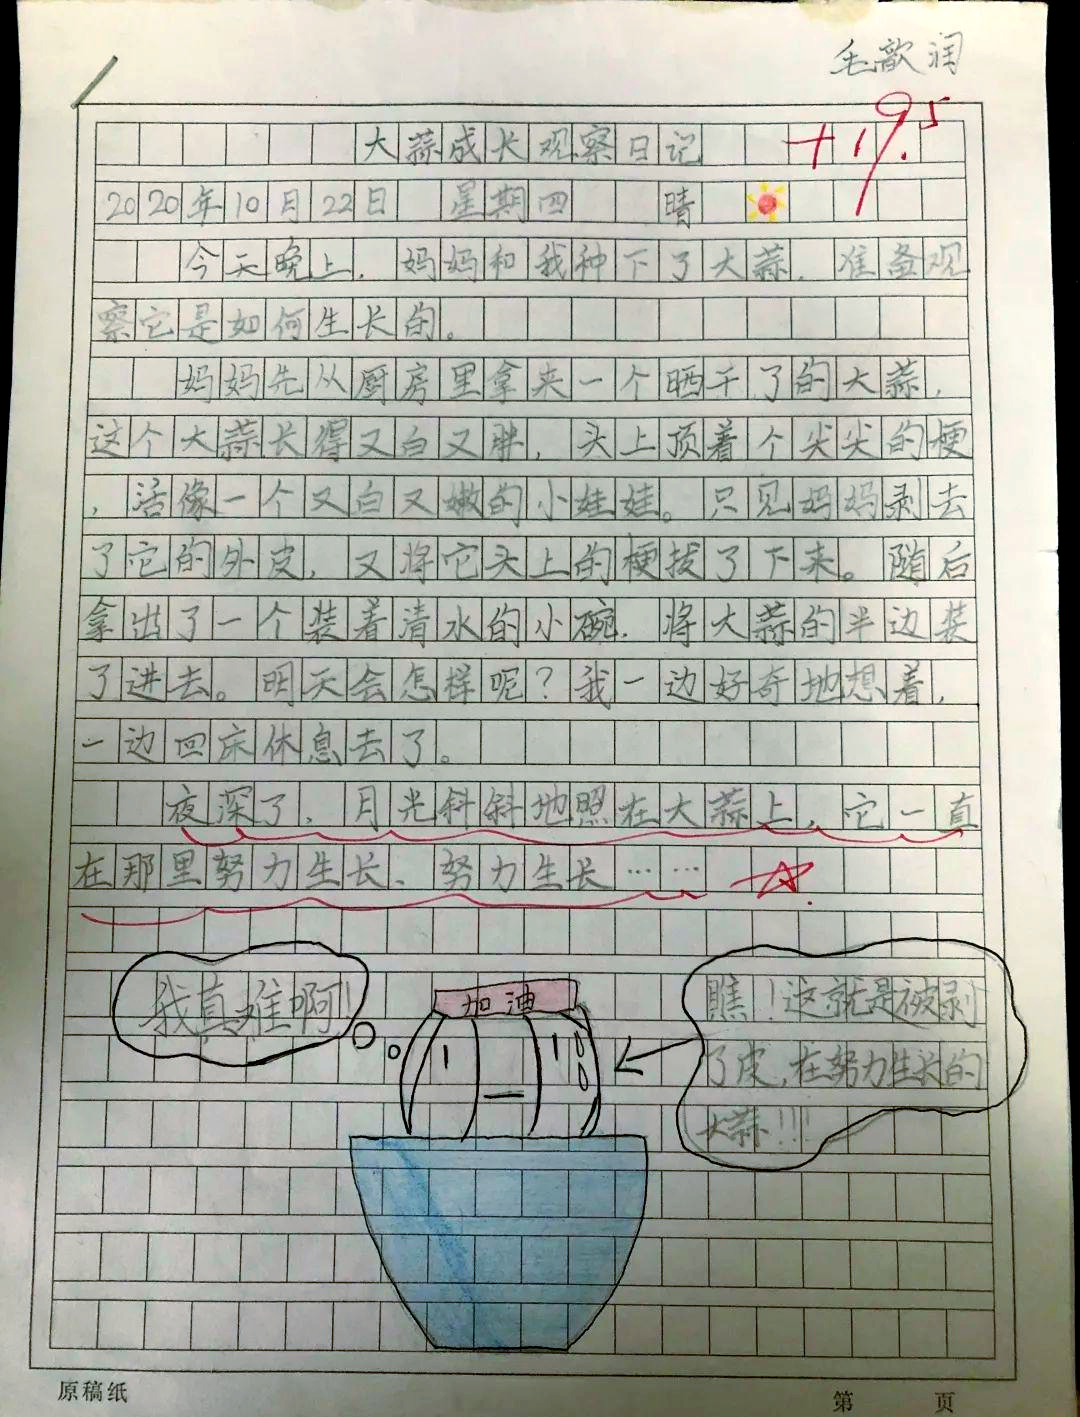 毛歆润
+19.5
大蒜成长观察日记
2020年10月22日 星期四 晴
今天晚上，妈妈和我种下了大蒜，准备观
察它是如何生长的。
妈妈先从厨房里拿来一个晒干了的大蒜，
这个大蒜长得又白又胖，头上顶着个尖尖的梗
，活像一个又白又嫩的小娃娃。只见妈妈剥去
了它的外皮，又将它头上的梗拔了下来。随后
拿出了一个装着清水的小碗，将大蒜的半边装
了进去。明天会怎样呢？我一边好奇地想着，
一边回床休息去了。
夜深了，月光斜斜地照在大蒜上，它一直
在那里努力生长、努力生长……
我真难啊！
加油
瞧！这就是被剥
了皮，在努力生长的
大蒜!!!
原稿纸
第 页